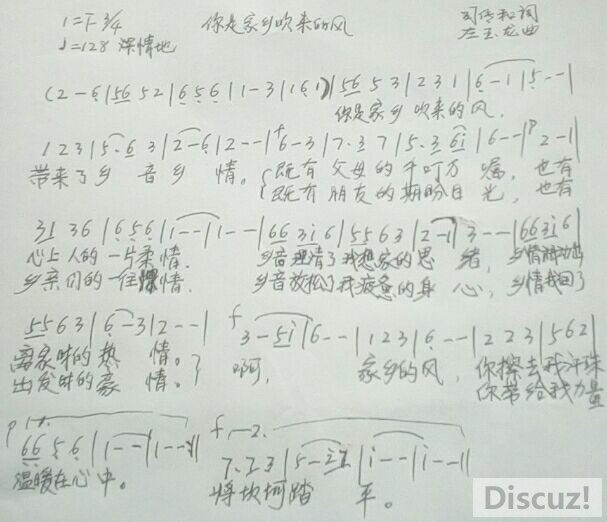 1=F 3/4 你是家乡吹来的风 司传和词
♩=128 深情地 左玉龙曲
(2 - 6|56 5 2|6 5 6|1 - 3|1 6 1)|56 5 3|2 3 1|6 - 1|5 - -|
你是家乡 吹来的风,
1 2 3|5 - 6 3|2 - 6|2 - -|f 6 - 3|7 · 3 7|5 · 3 6i|6 - -|p 2 - 1|
带来了乡 音乡 情。{既有 父母的 千叮万 嘱, 也有
既有 朋友的 期盼目 光, 也有
31 3 6|6 5 6|1 - -|1 - -|66 3i 6|55 6 3|2 - 1|3 - -|66 3i 6|
心上人的 一片柔情. 乡音理清了我想家的思 绪, 乡情
乡亲们的 一往情. 乡音放松了我疲惫的身 心, 乡情我回了
55 6 3|6 - 3|2 - -| f 3 - 5i|6 - -|1 2 3|6 - -|2 2 3|5 6 2|
离家时的热 情。} 啊, 家乡的风, 你擦去我汗珠
出发时的豪 情。 你带给我力量
p 1. 66 5 6|1 - -|1 - -:| f 2. 7 · 2 3|5 - i2|i - -|i - -|
温暖在心中。 将坎坷踏 平。
Discuz!